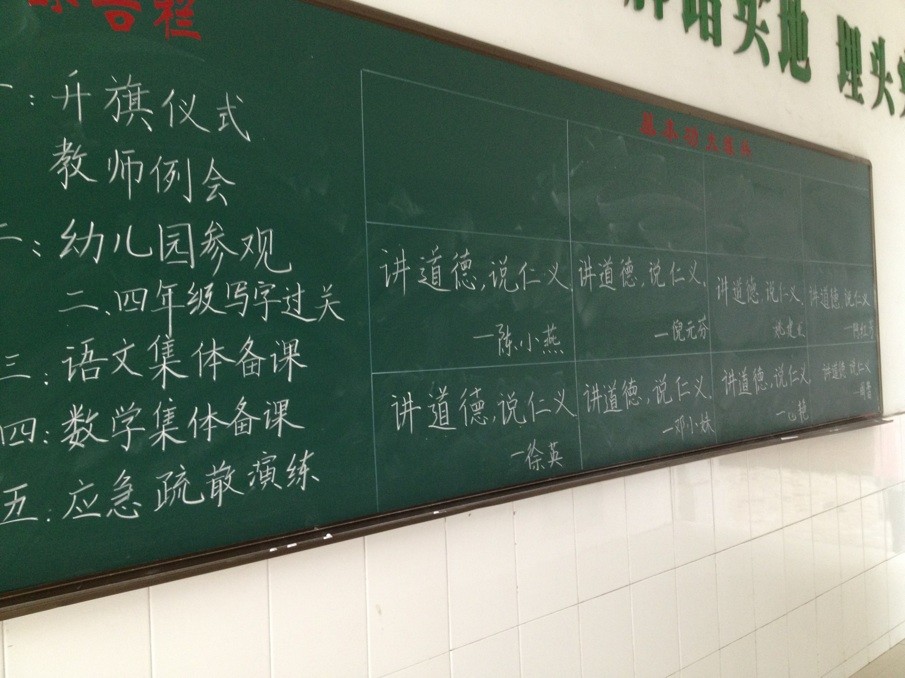 告栏
脚踏实地 埋头
基本功大赛
一: 升旗仪式
教师例会
二: 幼儿园参观
二、四年级写字过关
三: 语文集体备课
四: 数学集体备课
五: 应急疏散演练
讲道德,说仁义
—陈小燕
讲道德,说仁义.
—倪元芬
讲道德,说仁义
讲道德,说仁义
讲道德,说仁义
—徐英
讲道德,说仁义.
—邓小妹
讲道德,说仁义
讲道德,说仁义